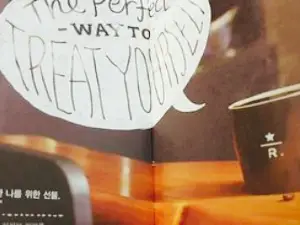 The Perfect
- WAY TO
TREAT YOURSELF
R.
나를 위한 선물.